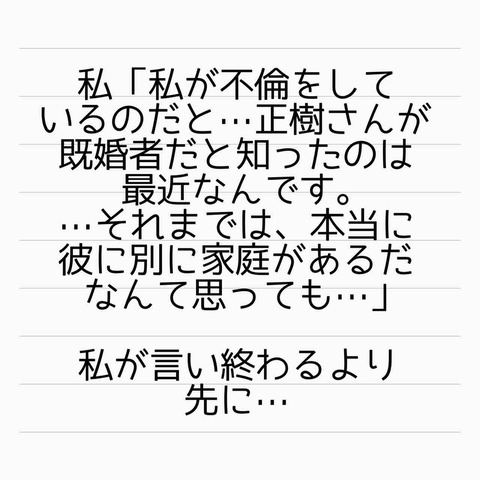 私「私が不倫をして
いるのだと…正樹さんが
既婚者だと知ったのは
最近なんです。
…それまでは、本当に
彼に別に家庭があるだ
なんて思っても…」
私が言い終わるより
先に…